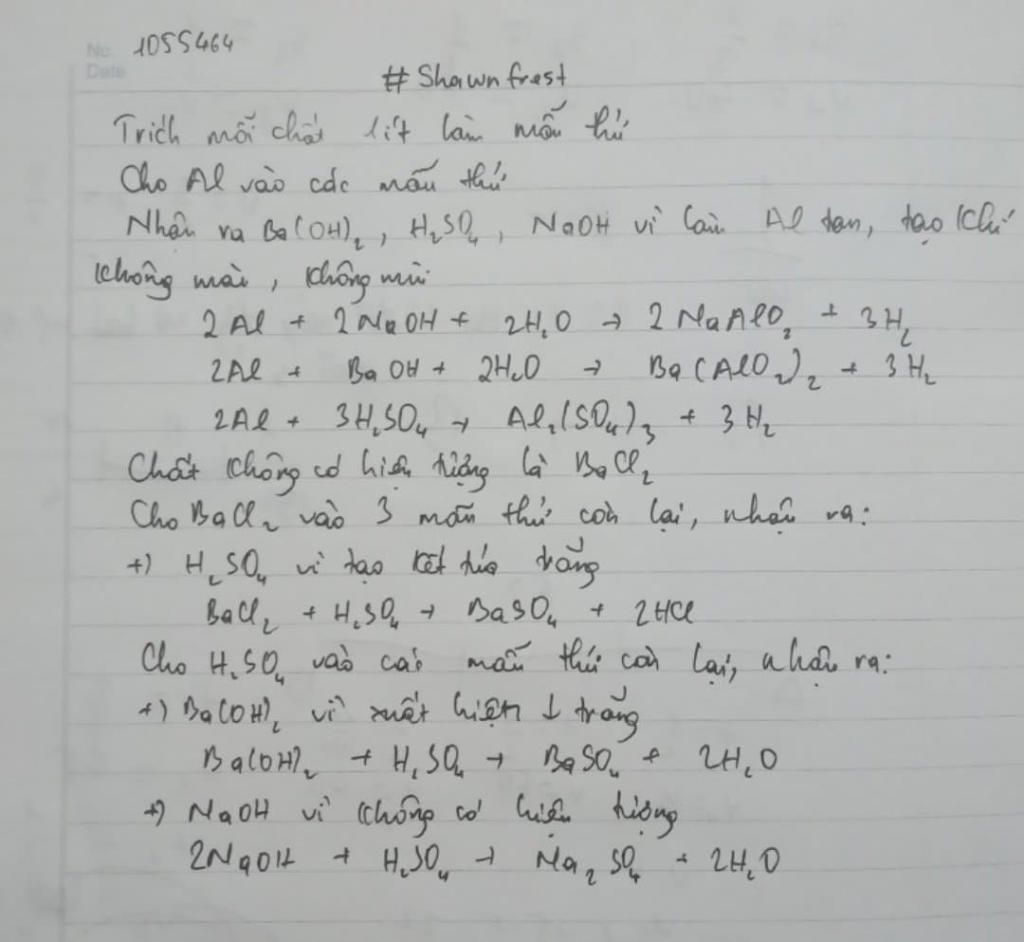 No. 1055464
Date
#Shawnfrest
Trích mỗi chất 1 ít làm mẫu thử
Cho Al vào các mẫu thử
Nhận ra Ba(OH)₂, H₂SO₄, NaOH vì làm Al tan, tạo khí
không màu, không mùi
2Al + 2NaOH + 2H₂O → 2NaAlO₂ + 3H₂
2Al + BaOH + 2H₂O → Ba(AlO₂)₂ + 3H₂
2Al + 3H₂SO₄ → Al₂(SO₄)₃ + 3H₂
Chất không có hiện tượng là BaCl₂
Cho BaCl₂ vào 3 mẫu thử còn lại, nhận ra:
+) H₂SO₄ vì tạo kết tủa trắng
BaCl₂ + H₂SO₄ → BaSO₄ + 2HCl
Cho H₂SO₄ vào các mẫu thử còn lại, nhận ra:
+) Ba(OH)₂ vì xuất hiện ↓ trắng
Ba(OH)₂ + H₂SO₄ → BaSO₄ + 2H₂O
+) NaOH vì không có hiện tượng
2NaOH + H₂SO₄ → Na₂SO₄ + 2H₂O